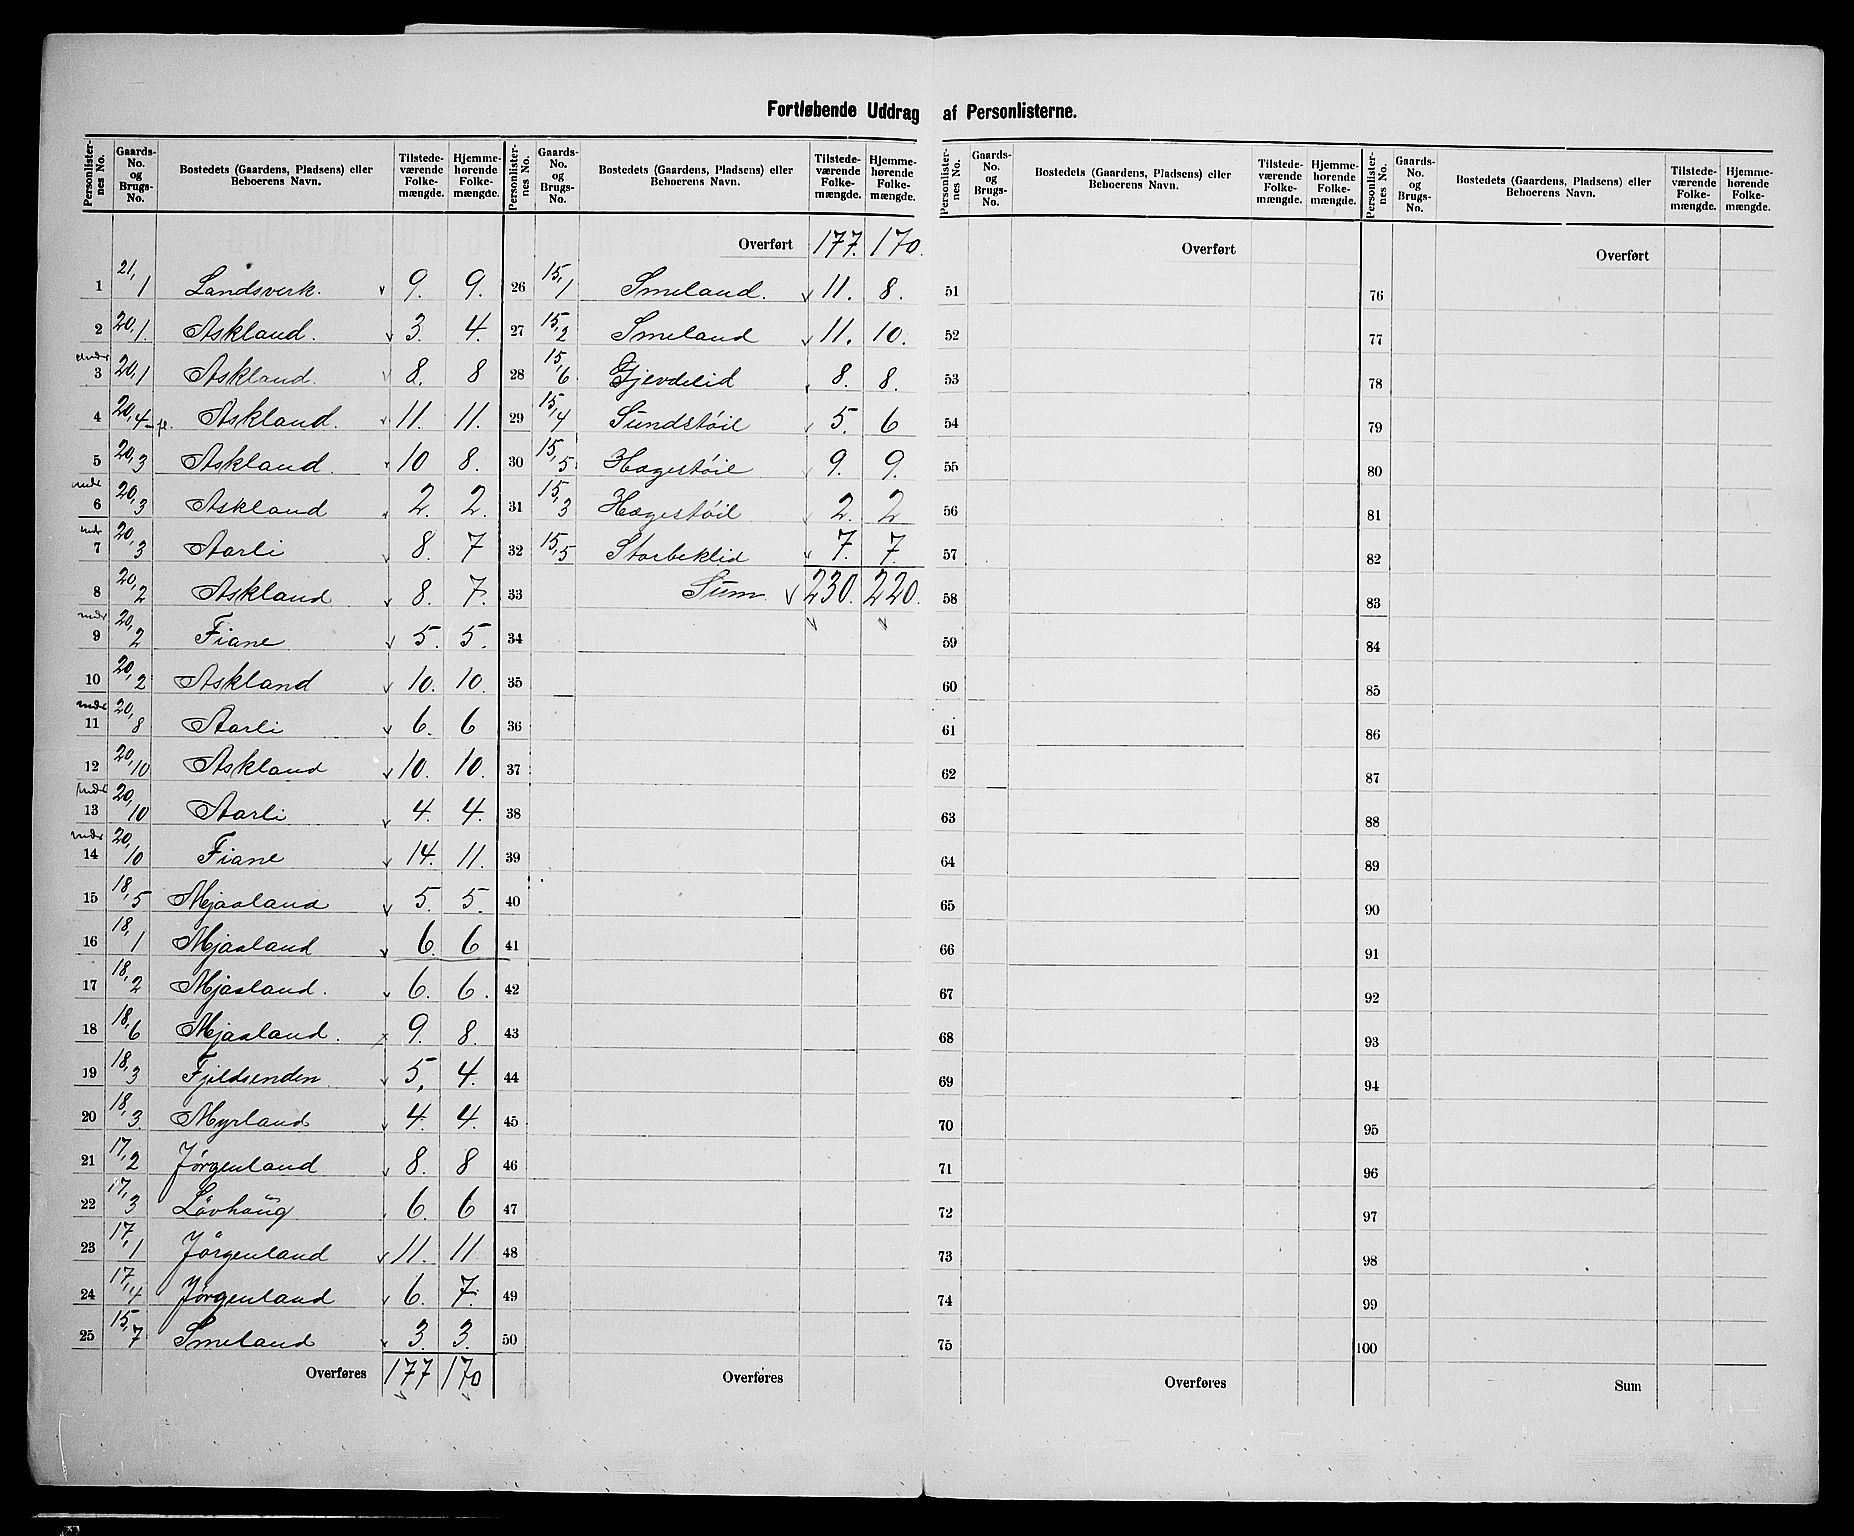 Fortløbende Uddrag af Personlisterne.
Personlisternes No. | Gaards-No. og Brugs-No. | Bostedets (Gaardens, Pladsens) eller Beboerens Navn. | Tilstedeværende Folkemængde. | Hjemmehørende Folkemængde.
1 21,1 Landsverk. 9. 9.
2 20,1. Askland. 3. 4.
3 20,1 Askland. 8. 8
4 20,4 Askland. 11. 11.
5 20,3 Askland. 10 8.
6 20,3 Askland 2. 2.
7 20,3 Aarli 8. 7
8 20,2 Askland 8. 7.
9 20,2 Fiane 5. 5.
10 20,2 Askland 10. 10.
11 20,8 Aarli 6. 6
12 20,10 Askland 10. 10.
13 20,10 Aarli 4. 4.
14 20,10 Fiane 14. 11.
15 18,5 Mjaaland 5. 5.
16 18,1 Mjaaland 6. 6
17 18,2 Mjaaland. 6. 6.
18 18,6 Mjaaland. 9. 8.
19 18,3 Fjeldsenden 5, 4.
20 18,3. Myrland 4. 4.
21 17,2 Jørgenland 8. 8
22 17,3 Løvhaug 6. 6
23 17,1 Jørgenland 11. 11
24 17,4 Jørgenland 6. 7.
25 15,7 Smeland 3. 3.
Overføres 177 170
Personlisternes No. | Gaards-No. og Brugs-No. | Bostedets (Gaardens, Pladsens) eller Beboerens Navn. | Tilstedeværende Folkemængde. | Hjemmehørende Folkemængde.
Overført 177. 170.
26 15,1 Smeland. 11. 8.
27 15,2 Smeland 11. 10.
28 15,6 Gjevdelid 8. 8.
29 15,4 Sundstøil 5. 6
30 15,5 Hægestøil 9. 9.
31 15,3 Hægestøil 2. 2
32 15,5 Storbeklid 7. 7.
33 Sum. 230. 220.
34
35
36
37
38
39
40
41
42
43
44
45
46
47
48
49
50
Overføres
Personlisternes No. | Gaards-No. og Brugs-No. | Bostedets (Gaardens, Pladsens) eller Beboerens Navn. | Tilstedeværende Folkemængde. | Hjemmehørende Folkemængde.
Overført
51
52
53
54
55
56
57
58
59
60
61
62
63
64
65
66
67
68
69
70
71
72
73
74
75
Overføres
Personlisternes No. | Gaards-No. og Brugs-No. | Bostedets (Gaardens, Pladsens) eller Beboerens Navn. | Tilstedeværende Folkemængde. | Hjemmehørende Folkemængde.
Overført
76
77
78
79
80
81
82
83
84
85
86
87
88
89
90
91
92
93
94
95
96
97
98
99
100
Sum